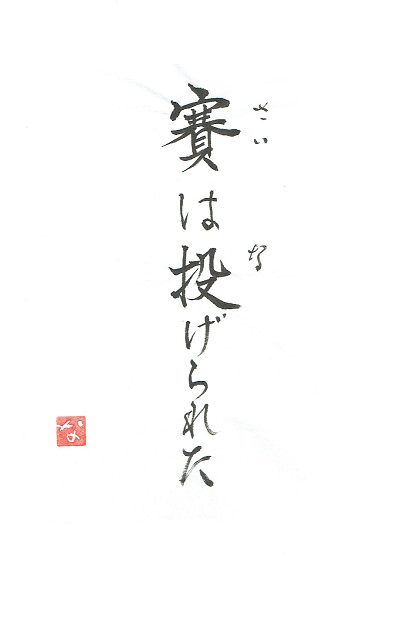 賽は投げられた
さい
な
な